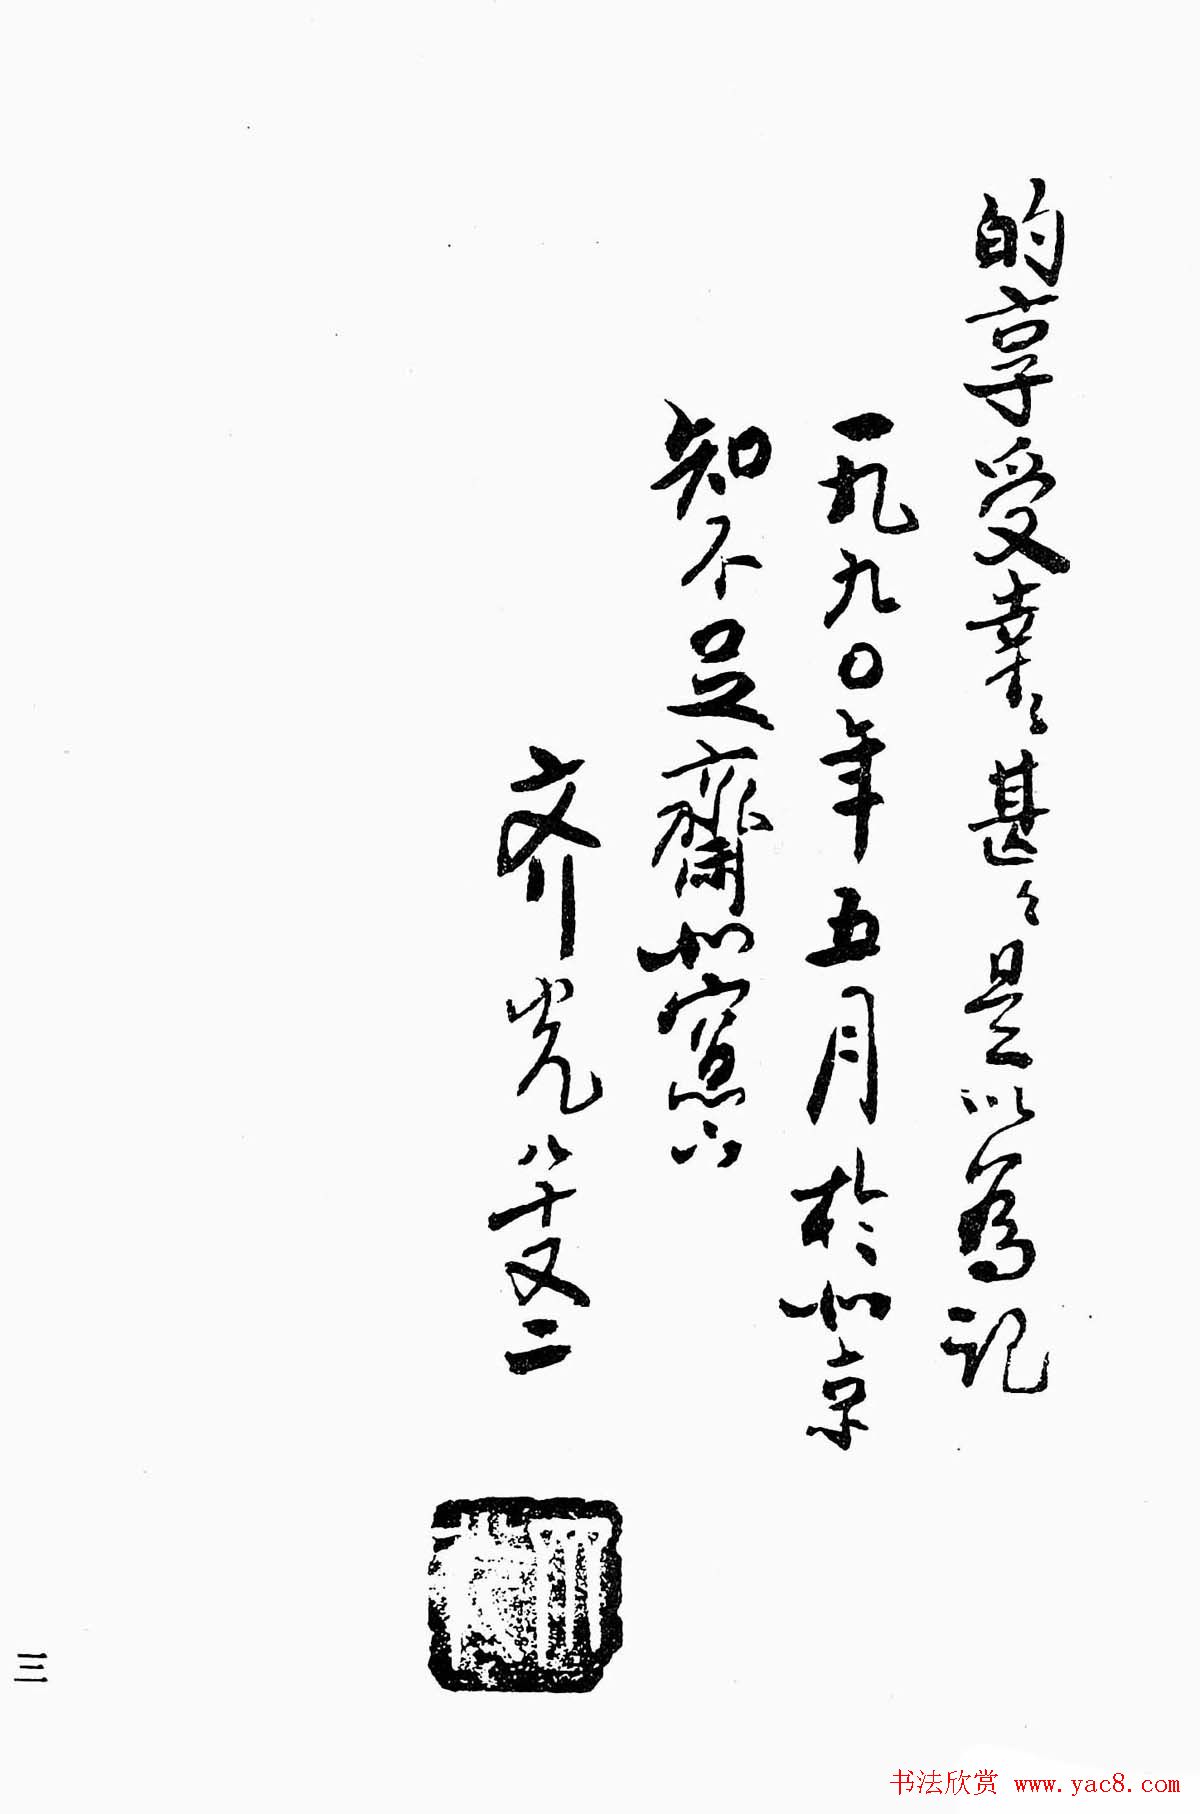 的享受幸〻甚〻是以為记
一九九〇年五月於北京
知不足齋北窗下
齐光八十又二
三
书法欣赏 www.yac8.com